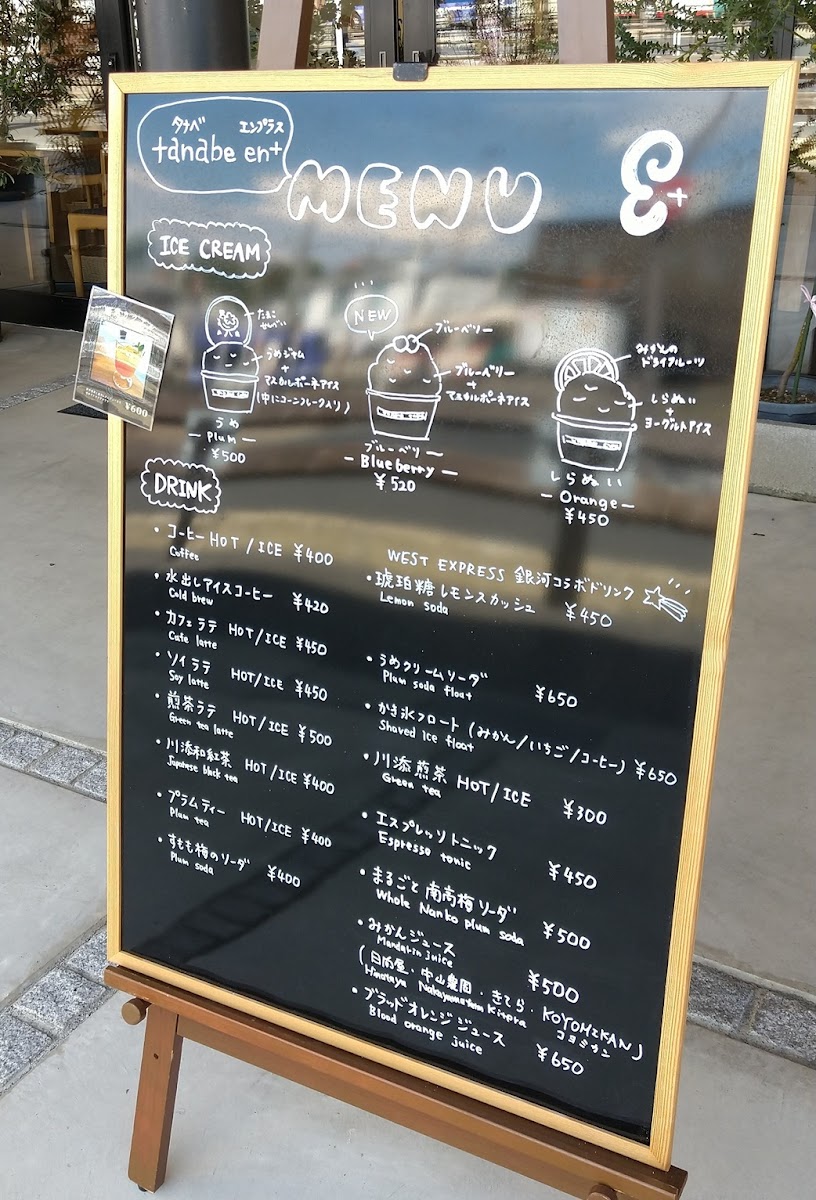 タナベ エンプラス
tanabe en+
MENU
ε+
ICE CREAM
たまご
せんべい
うめジャム
+
マスカルポーネアイス
(中にコーンフレーク入り)
うめ
— Plum —
¥500
NEW
ブルーベリー
ブルーベリー
+
マスカルポーネアイス
ブルーベリー
— Blueberry —
¥520
みかんの
ドライフルーツ
しらぬい
+
ヨーグルトアイス
しらぬい
— Orange —
¥450
¥600
DRINK
・コーヒー HOT / ICE ¥400
Coffee
・水出しアイスコーヒー ¥420
Cold brew
・カフェラテ HOT/ICE ¥450
Cafe latte
・ソイラテ HOT/ICE ¥450
Soy latte
・煎茶ラテ HOT/ICE ¥500
Green tea latte
・川添和紅茶 HOT/ICE ¥400
Japanese black tea
・プラムティー HOT/ICE ¥400
Plum tea
・すもも梅のソーダ ¥400
Plum soda
WEST EXPRESS 銀河コラボドリンク
・琥珀糖レモンスカッシュ ¥450
Lemon soda
・うめクリームソーダ ¥650
Plum soda float
・かき氷フロート (みかん/いちご/コーヒー) ¥650
Shaved ice float
・川添煎茶 HOT/ICE ¥300
Green tea
・エスプレッソトニック ¥450
Espresso tonic
・まるごと南高梅ソーダ ¥500
Whole Nanko plum soda
・みかんジュース ¥500
Mandarin juice
(日向屋・中山農園・きてら・KOYOMIKAN)
コヨミカン
・ブラッドオレンジジュース ¥650
Blood orange juice